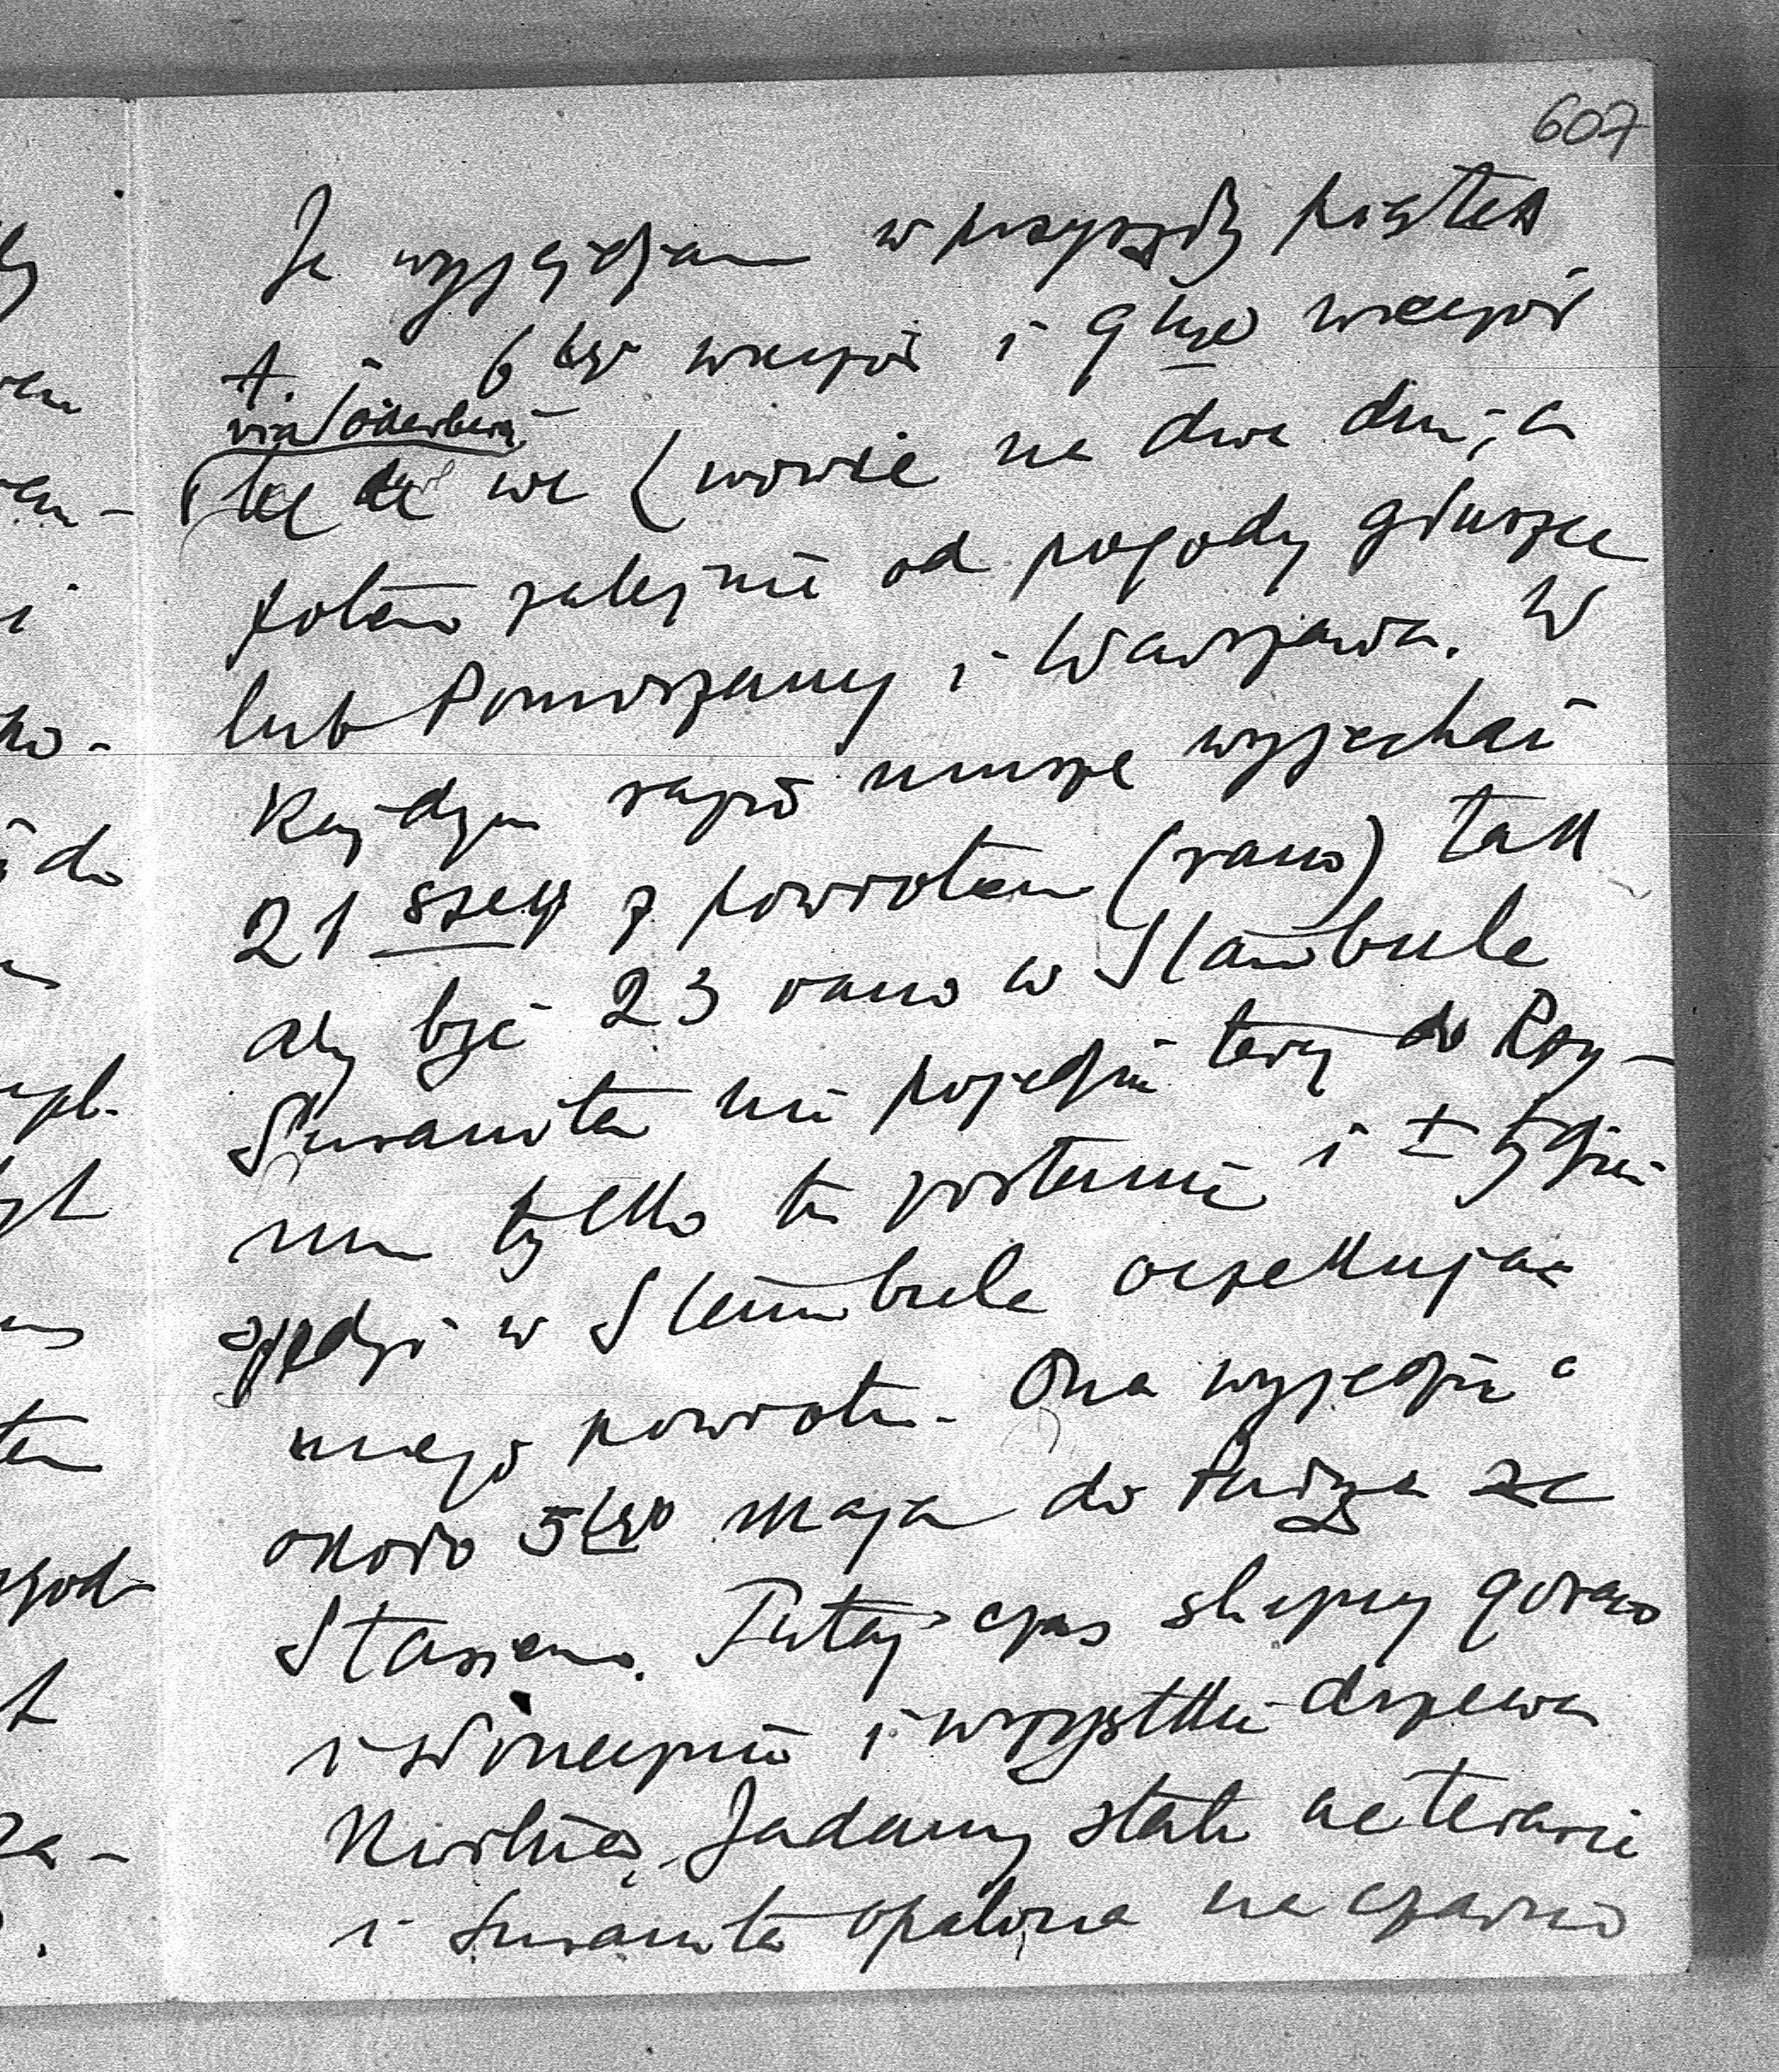 607
Ja wyjeżdżam w przyszły piątek
t. j. 6tego wieczór i 9tego wieczór
via Oderberg
będę we Lwowie na dwa dni, a
potem zależnie od pogody głuszce
lub Pomorzany i Warszawa. W
każdym razie muszę wyjechać
21szego z powrotem (rano) tak
aby być 23 rano w Stambule
Zuzanita nie pojedzie teraz do Rzy-
mu tylko tu zostanie i ± tydzień
spędzi w Stambule oczekując
mego powrotu. Ona wyjedzie
około 5tego maja do Paryża ze
Stasiem. Tutaj czas śliczny gorąco
i słonecznie i wszystkie drzewa
kwitną. Jadamy stale na terasie
i Zuzanita opalona na czarno